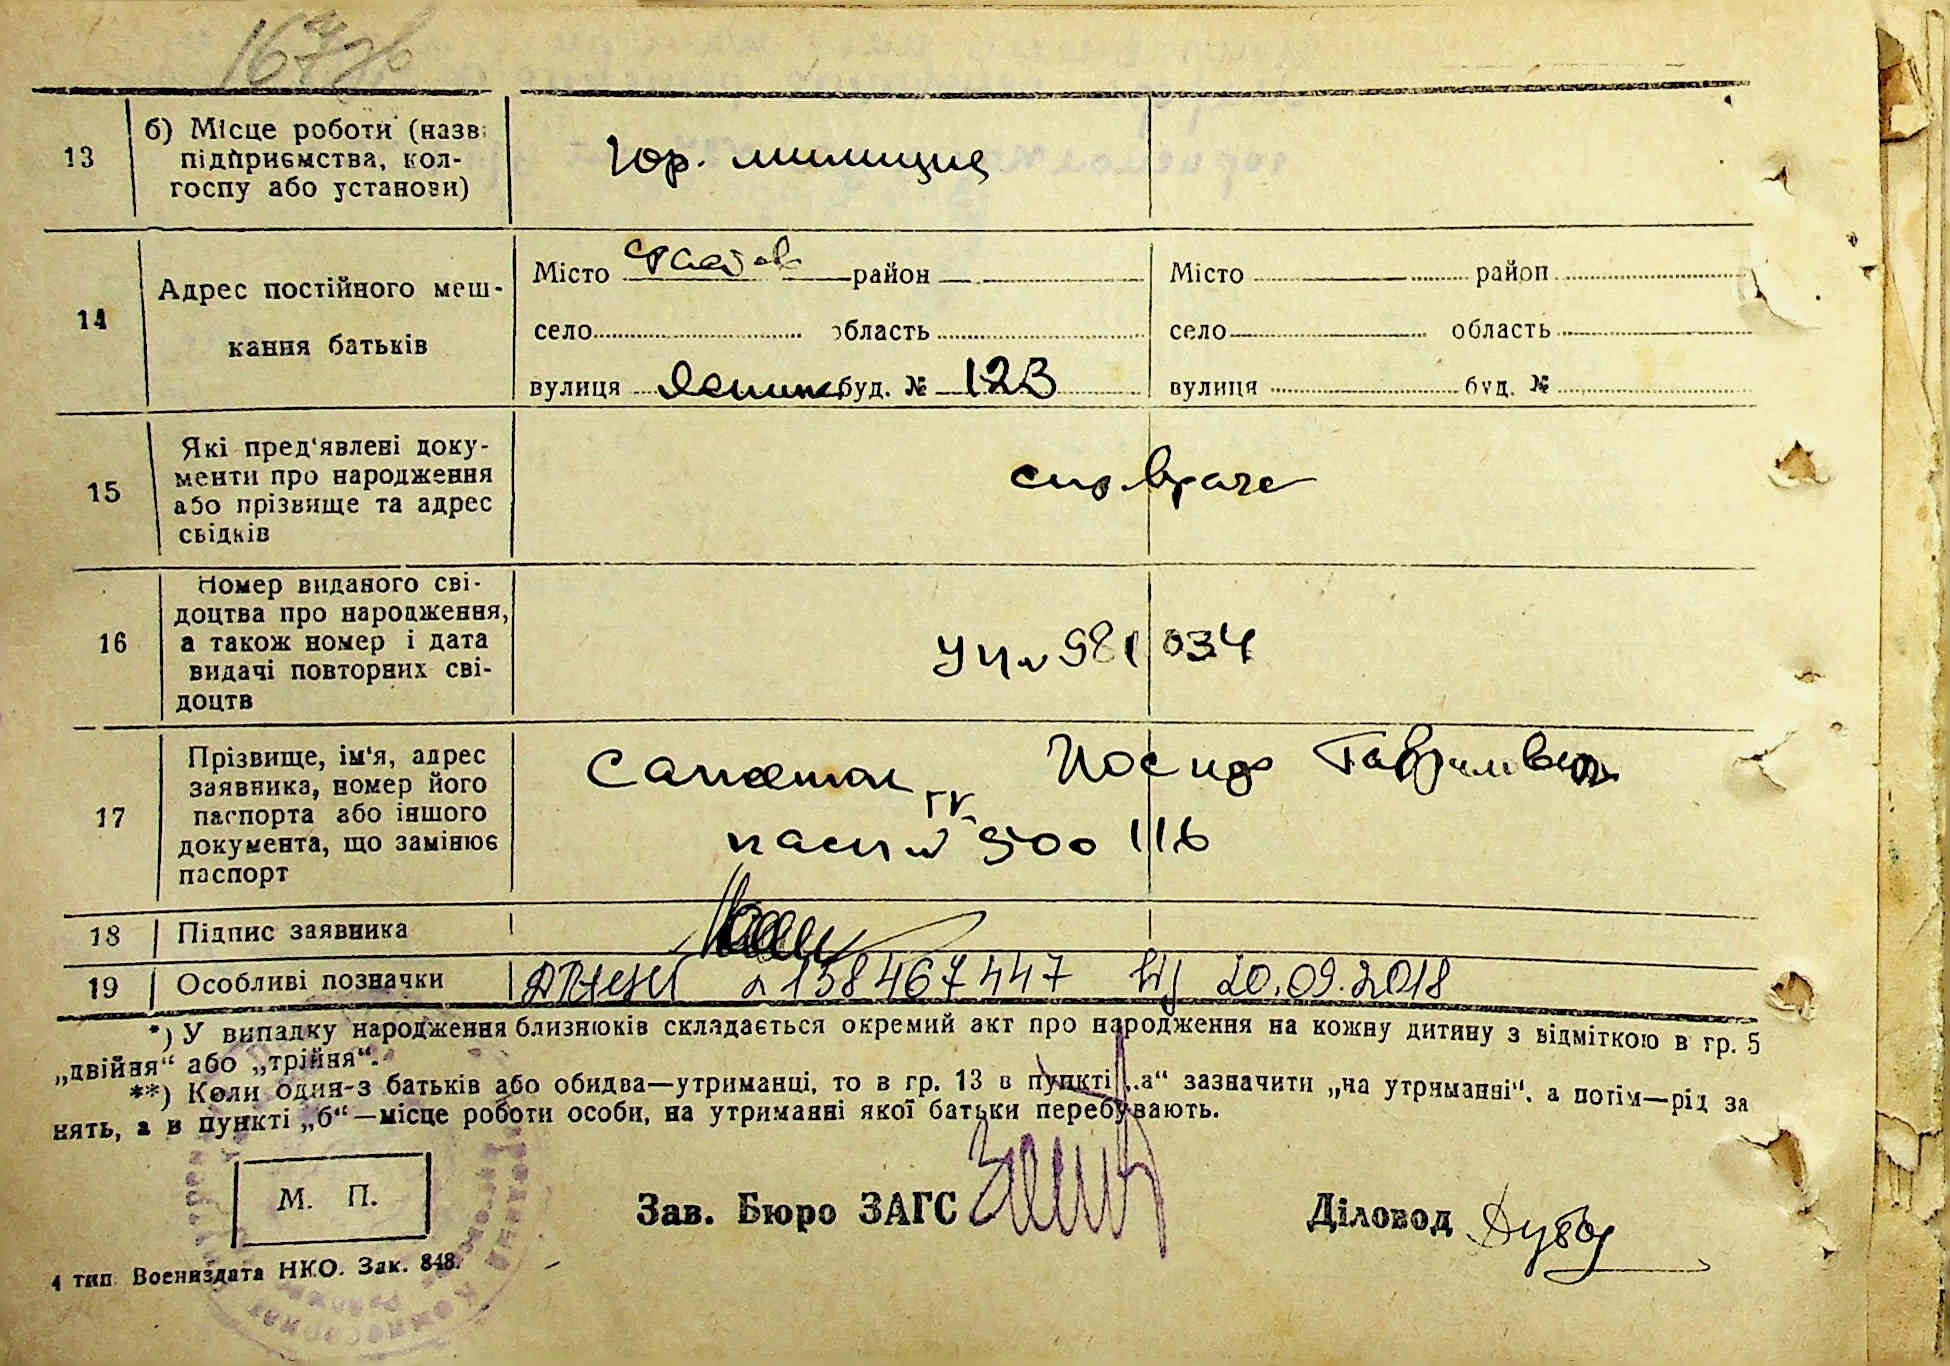 13
б) Місце роботи (назв
підприємства, кол-
госпу або установи)
Гор. милиция
14
Адрес постійного меш-
кання батьків
Місто район
село область
вулиця буд. № 123
Місто район
село область
вулиця буд. №
15
Які пред'явлені доку-
менти про народження
або прізвище та адрес
свідків
спр. врача
16
Номер виданого сві-
доцтва про народження,
а також номер і дата
видачі повторних сві-
доцтв
981034
17
Прізвище, ім'я, адрес
заявника, номер його
паспорта або іншого
документа, що замінює
паспорт
Иосиф Гаврилович
ГК
пасп № 500 116
18
Підпис заявника
19
Особливі позначки
158467447 від 20.09.2018
*) У випадку народження близнюків складається окремий акт про народження на кожну дитину з відміткою в гр. 5
„двійня“ або „трійня“.
**) Коли один-з батьків або обидва—утриманці, то в гр. 13 в пункті „а“ зазначити „на утриманні“, а потім—рід за
нять, а в пункті „б“—місце роботи особи, на утриманні якої батьки перебувають.
М. П.
Зав. Бюро ЗАГС
Діловод
4 тип. Воениздата НКО. Зак. 848.